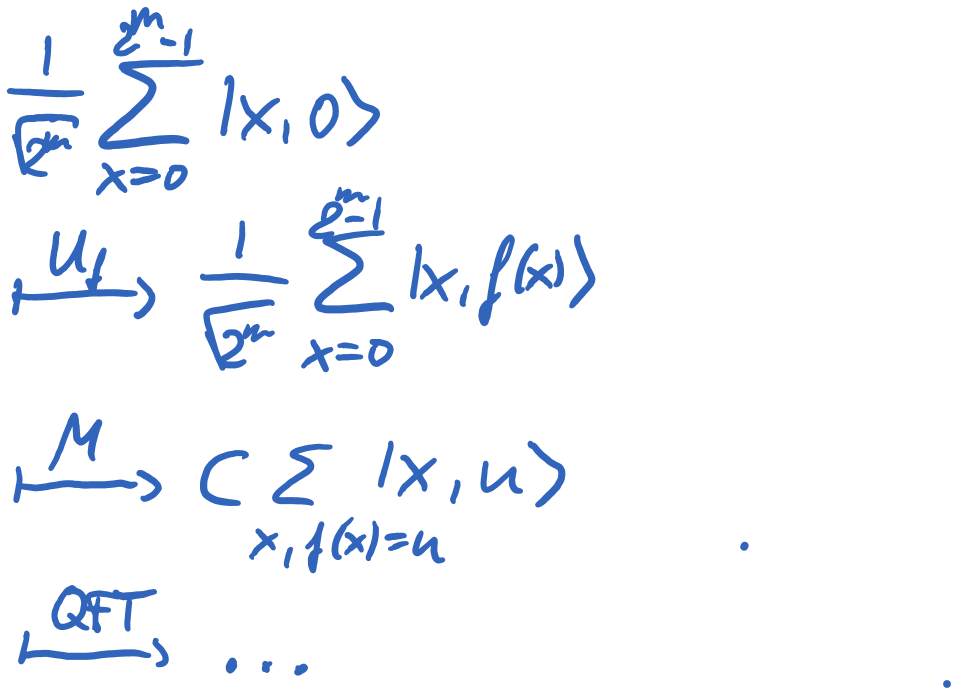 $\frac{1}{\sqrt{2^m}} \sum_{x=0}^{2^m-1} |x, 0\rangle$
$\overset{U_f}{\longmapsto} \frac{1}{\sqrt{2^m}} \sum_{x=0}^{2^m-1} |x, f(x)\rangle$
$\overset{M}{\longmapsto} C \sum_{x, f(x)=u} |x, u\rangle$
$\overset{QFT}{\longmapsto} \ldots$